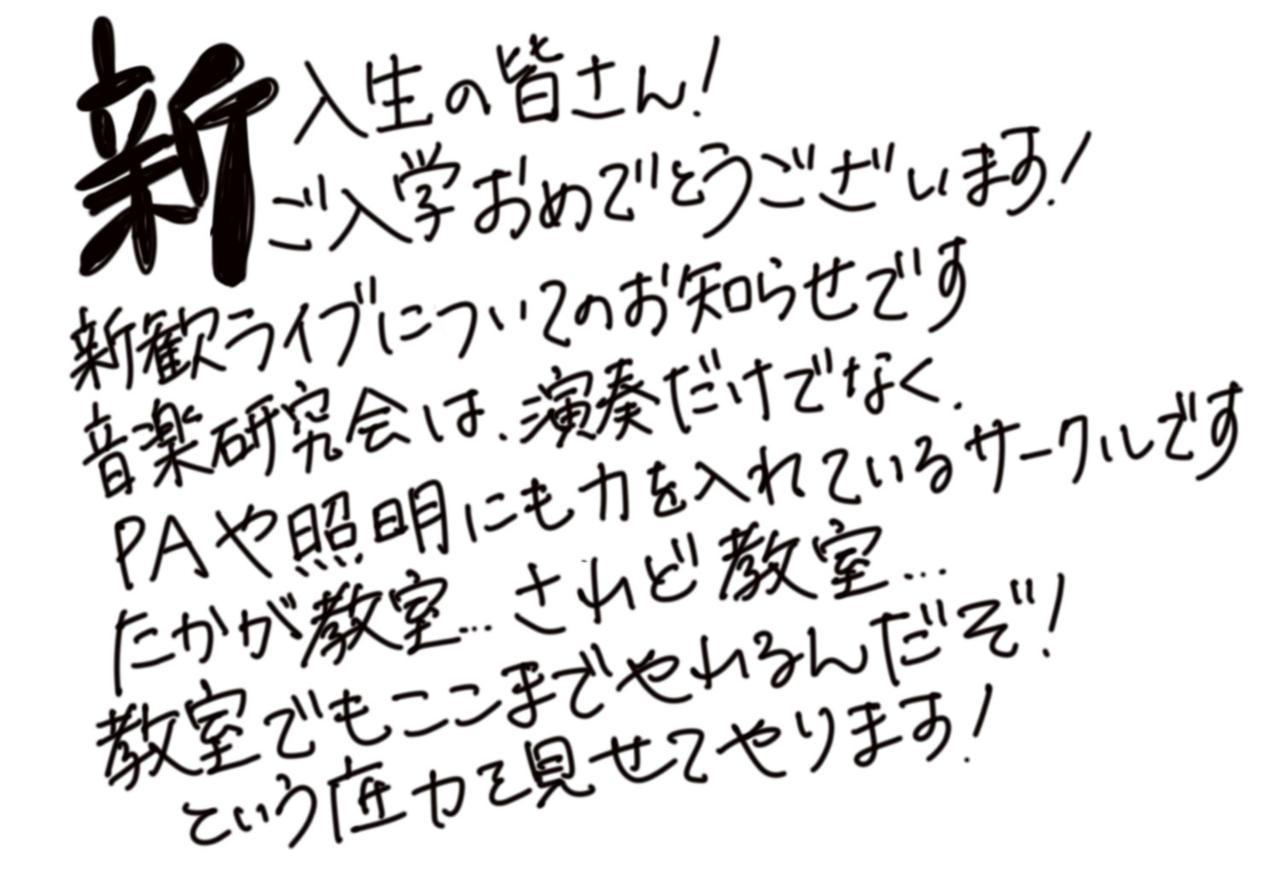 新入生の皆さん!
ご入学おめでとうございます!
新歓ライブについてのお知らせです
音楽研究会は、演奏だけでなく、
PAや照明にも力を入れているサークルです
たかが教室…されど教室…
教室でもここまでやれるんだぞ!
という底力を見せてやります!